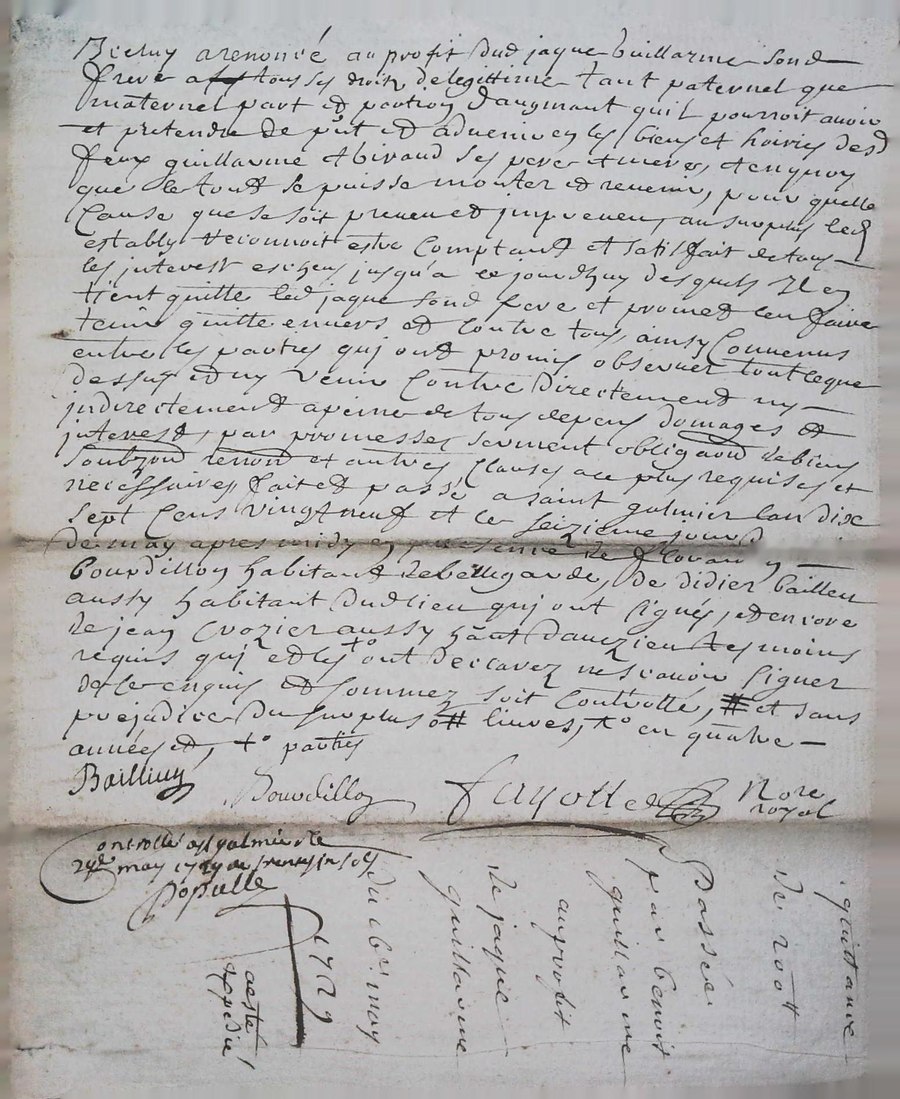 a renoncé au profit dud jaque Guillarme sond
frere a tous ses droits de legittime tant paternel que
maternel part et portion daugmant quil pourroit avoir
et pretendre de pnt et advenir en les biens et hoiries desd
feux guillarme et biraud ses pere et mere, et en quoy
que le tout se puisse monter et revenir, pour quelle
Cause que se soit preveu et impreveu, au surplus led
estably reconnoit estre Comptant et satisfait de tous
les interest escheus jusqu'a ce jourdhuy desquels Il en
tient quitte led jaque sond frere et promet len faire
tenir quitte envers et contre tous, ainsy Convenus
entre les parties quj ont promis observer tout ceque
dessus et ny venir Contre directement ny
jndirectement a peine de tous depens domages et
jnterest, par promesses serment obligaon de biens
soubzon renon et autres Clauses au plus requises et
necessaires, fait et passé a saint galmier lan dix
sept Cens Vingt neuf et le seizieme jour
de may apres midy en presence de
bourdillon habitant de bellegarde, de didier baillieu
aussy habitant dud lieu quj ont signés, et encore
de jean Crozier aussy hant tesmoins
requis quj et les pties ont declarez ne scavoir signer
de ce enquis et sommez soit Contrôllé, # et sans
prejudice du surplus livres, en quatre
années,
Bailliuy Bourdillon fayolle Nore
royal
Controllé a st galmier le
29e may 1729
Populle
quittance
de 200tt
Passée
par benoit
guillarme
au profit
de jaque
guillarme
du 16e may
1729
expedié